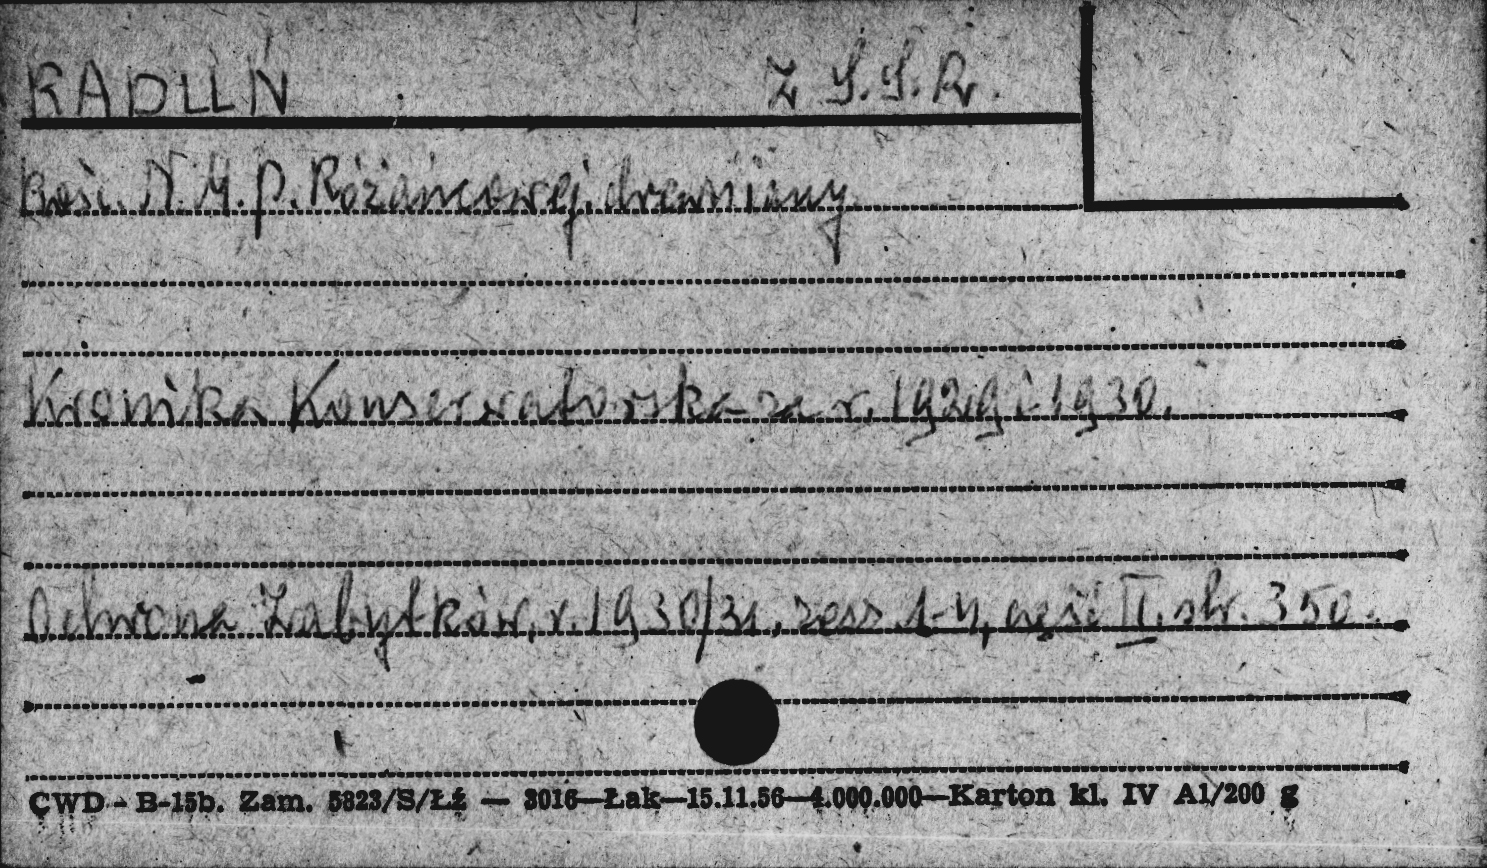 RADLLN Z S.S.R.
Kość. N.M.P. Różańcowej, drewniany.
Kronika Konserwatorska za r. 1929 i 1930.
Ochrona Zabytków, r. 1930/31, zesz. 1-4, część II, str. 350.
CWD - B-15b. Zam. 5823/S/Łż — 3016—Łak—15.11.56—4.000.000—Karton kl. IV A1/200 g